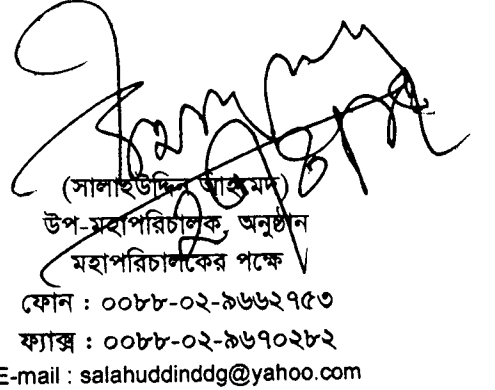 (সালাহউদ্দিন আহমেদ)
উপ-মহাপরিচালক, অনুষ্ঠান
মহাপরিচালকের পক্ষে
ফোন : ০০৮৮-০২-৯৬৬২৭৫৩
ফ্যাক্স : ০০৮৮-০২-৯৬৭০২৮২
E-mail : salahuddinddg@yahoo.com